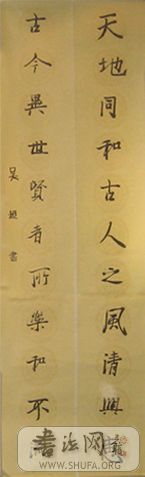 天地同和古人之風清興
古今異世賢者所樂和不
書
書法网
WWW.SHUFA.ORG